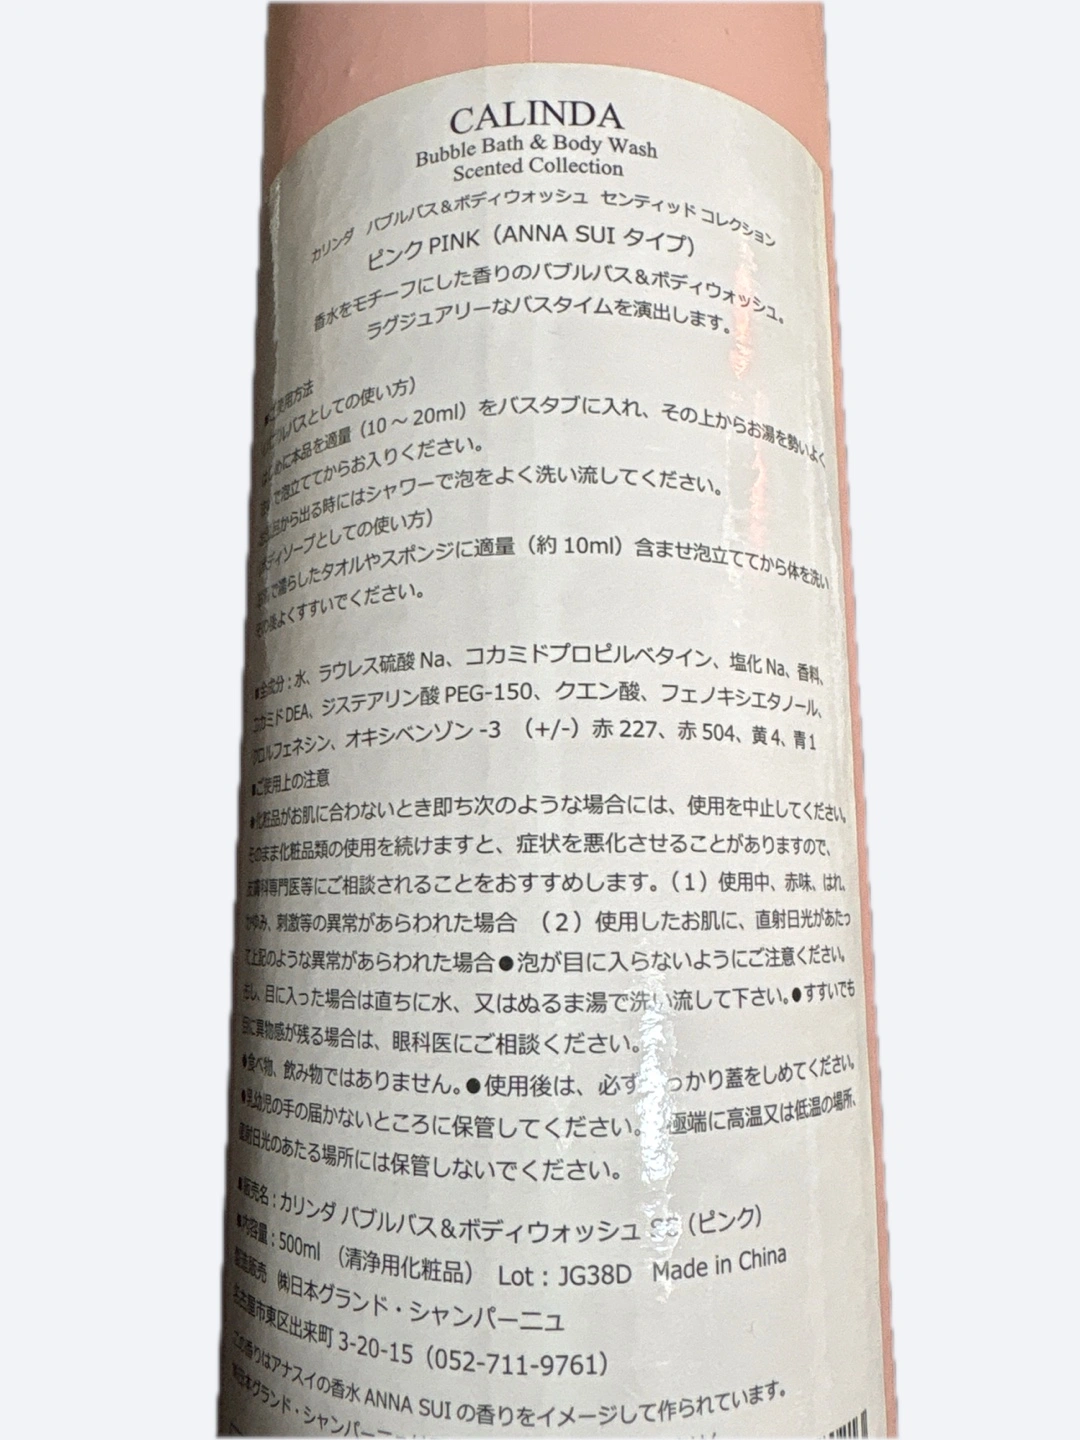 CALINDA
Bubble Bath & Body Wash
Scented Collection
カリンダ バブルバス&ボディウォッシュ センティッド コレクション
ピンク PINK（ANNA SUI タイプ）
香水をモチーフにした香りのバブルバス&ボディウォッシュ。
ラグジュアリーなバスタイムを演出します。
■ご使用方法
バブルバスとしての使い方）
はじめに本品を適量（10～20ml）をバスタブに入れ、その上からお湯を勢いよく
で泡立ててからお入りください。
から出る時にはシャワーで泡をよく洗い流してください。
ボディソープとしての使い方）
で濡らしたタオルやスポンジに適量（約 10ml）含ませ泡立ててから体を洗い
その後よくすすいでください。
■全成分：水、ラウレス硫酸 Na、コカミドプロピルベタイン、塩化 Na、香料、
コカミド DEA、ジステアリン酸 PEG-150、クエン酸、フェノキシエタノール、
クロルフェネシン、オキシベンゾン -3 （+/-）赤 227、赤 504、黄 4、青 1
■ご使用上の注意
●化粧品がお肌に合わないとき即ち次のような場合には、使用を中止してください。
そのまま化粧品類の使用を続けますと、症状を悪化させることがありますので、
皮膚科専門医等にご相談されることをおすすめします。（１）使用中、赤味、はれ、
かゆみ、刺激等の異常があらわれた場合 （２）使用したお肌に、直射日光があたっ
て上記のような異常があらわれた場合●泡が目に入らないようにご注意ください。
もし、目に入った場合は直ちに水、又はぬるま湯で洗い流して下さい。●すすいでも
目に異物感が残る場合は、眼科医にご相談ください。
●食べ物、飲み物ではありません。●使用後は、必ずしっかり蓋をしめてください。
●乳幼児の手の届かないところに保管してください。 極端に高温又は低温の場所、
直射日光のあたる場所には保管しないでください。
■販売名：カリンダ バブルバス&ボディウォッシュ （ピンク）
■内容量：500ml （清浄用化粧品） Lot：JG38D Made in China
製造販売 ㈱日本グランド・シャンパーニュ
名古屋市東区出来町 3-20-15（052-711-9761）
この香りはアナスイの香水 ANNA SUI の香りをイメージして作られています。
日本グランド・シャンパーニュ